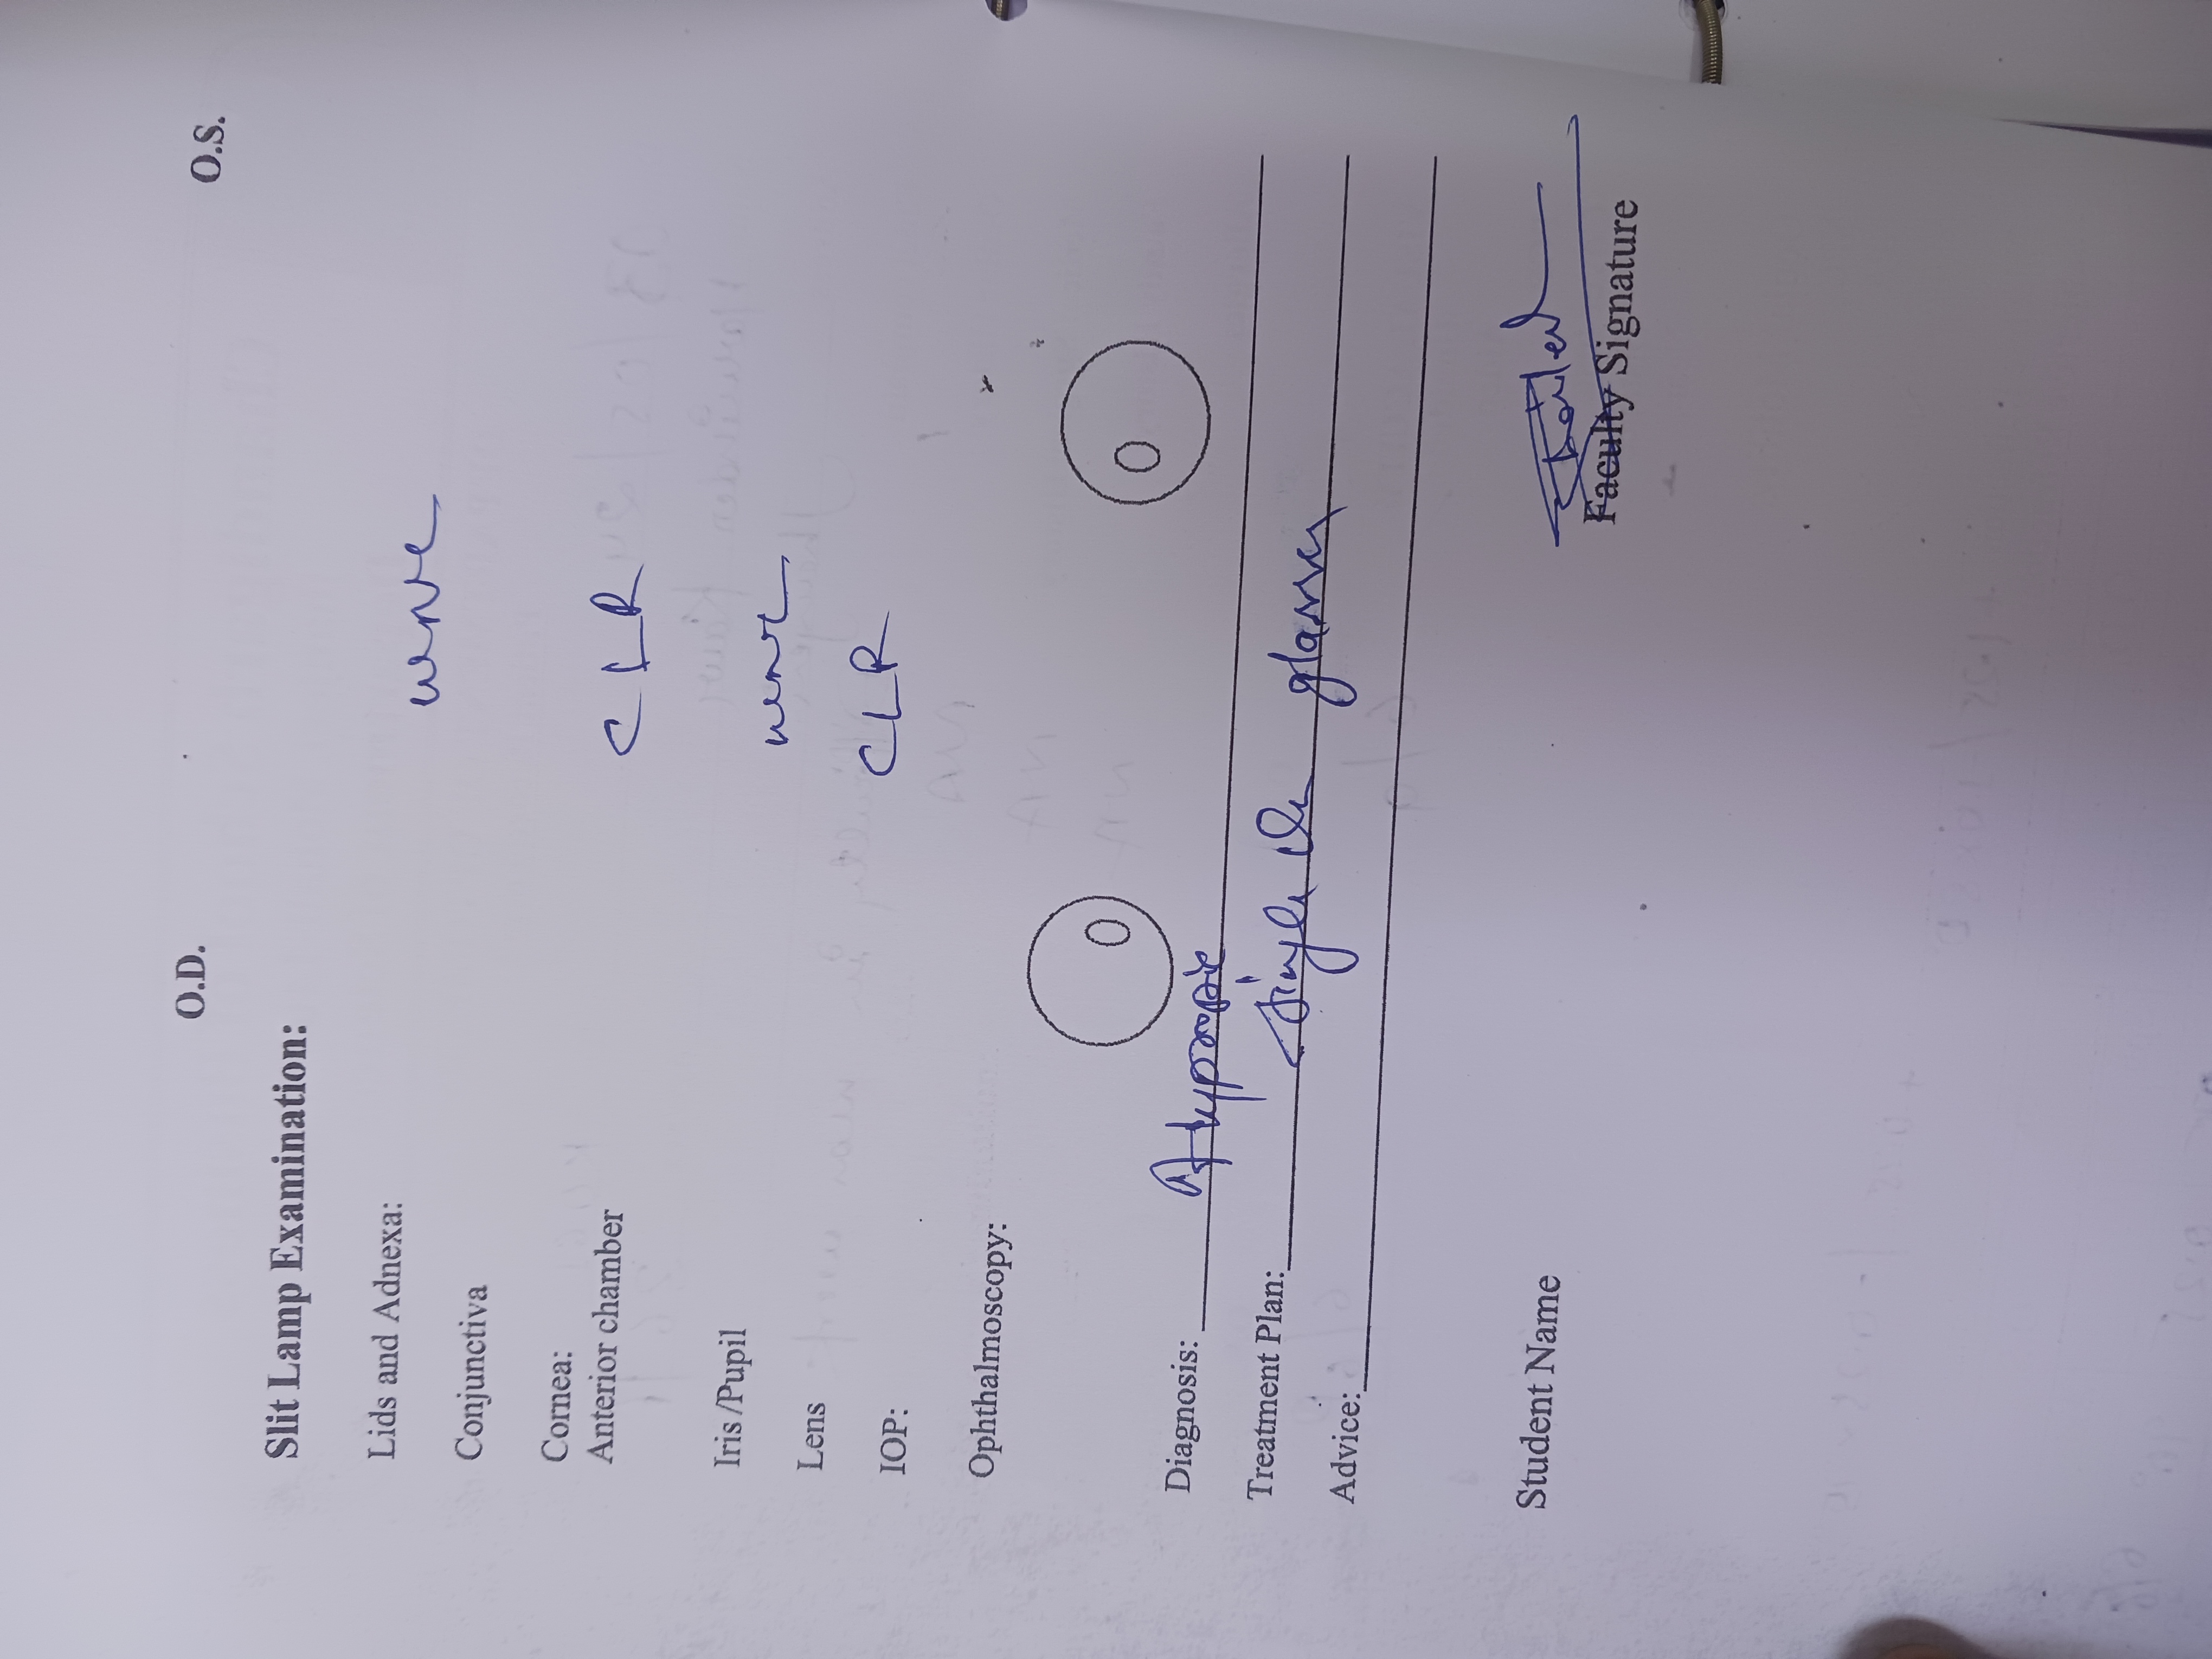 O.D. O.S.
Slit Lamp Examination:
Lids and Adnexa:
Conjunctiva
Cornea:
Anterior chamber CLR
Iris /Pupil
Lens
IOP: CLR
Ophthalmoscopy:
Diagnosis:
Treatment Plan: Single glasses
Advice:
Student Name
Faculty Signature